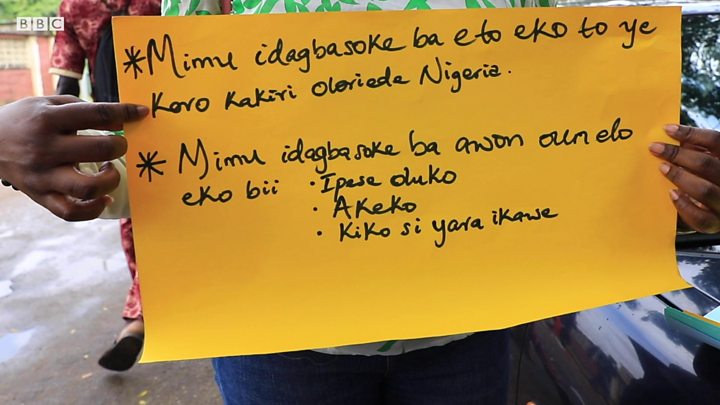 BBC
*Mimu idagbasoke ba eto eko to ye
Koro kakiri oloriede Nigeria.
* Mimu idagbasoke ba awon oun elo
eko bii • Ipese oluko
• Akeko
• Kiko si yara ikawe